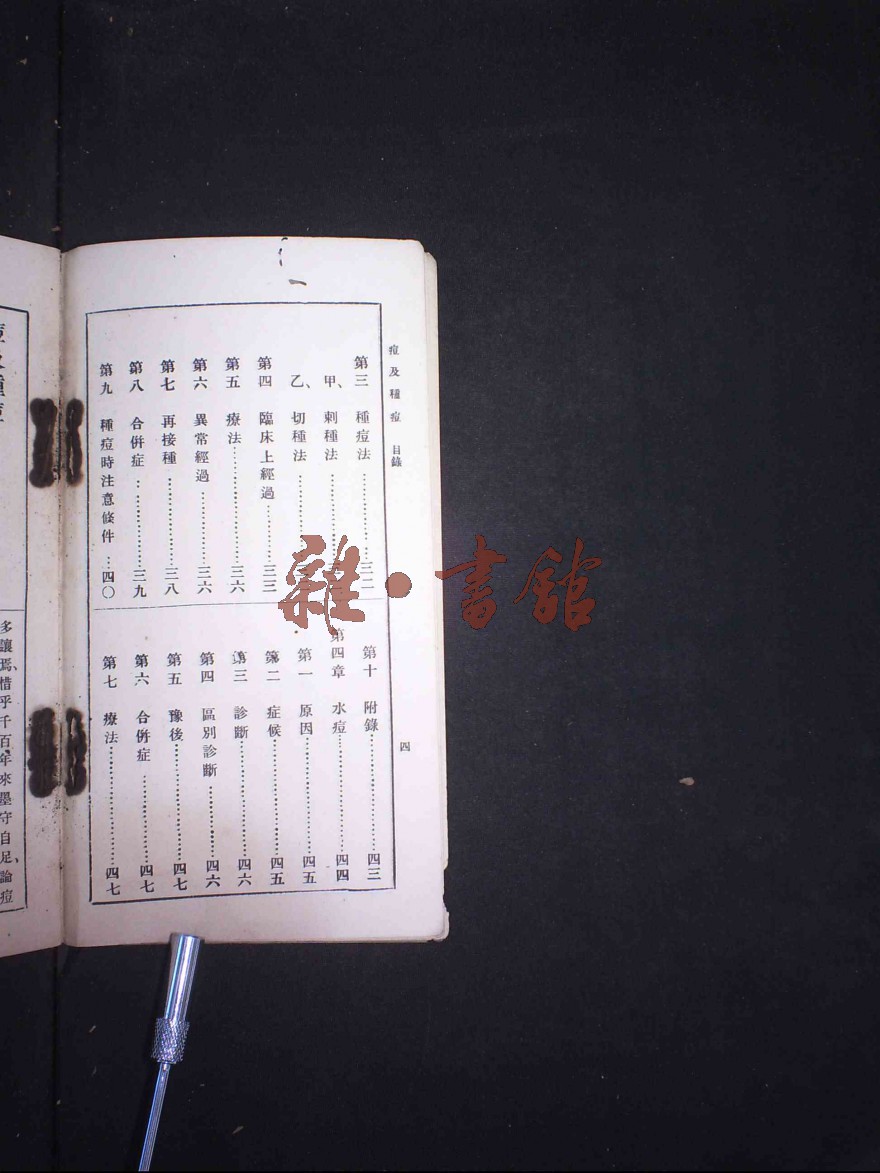 痘及種痘 目錄
四
第三 種痘法…………三二
甲、刺種法…………
乙、切種法…………
第四 臨床上經過………三三
第五 療法…………三六
第六 異常經過…………三六
第七 再接種…………三八
第八 合併症…………三九
第九 種痘時注意條件…四〇
第十 附錄…………四三
第四章 水痘…………四四
第一 原因…………四五
第二 症候…………四五
第三 診斷…………四六
第四 區別診斷…………四六
第五 豫後…………四七
第六 合併症…………四七
第七 療法…………四七
多讓焉、惜乎千百年來墨守自足、論痘
雜·書館